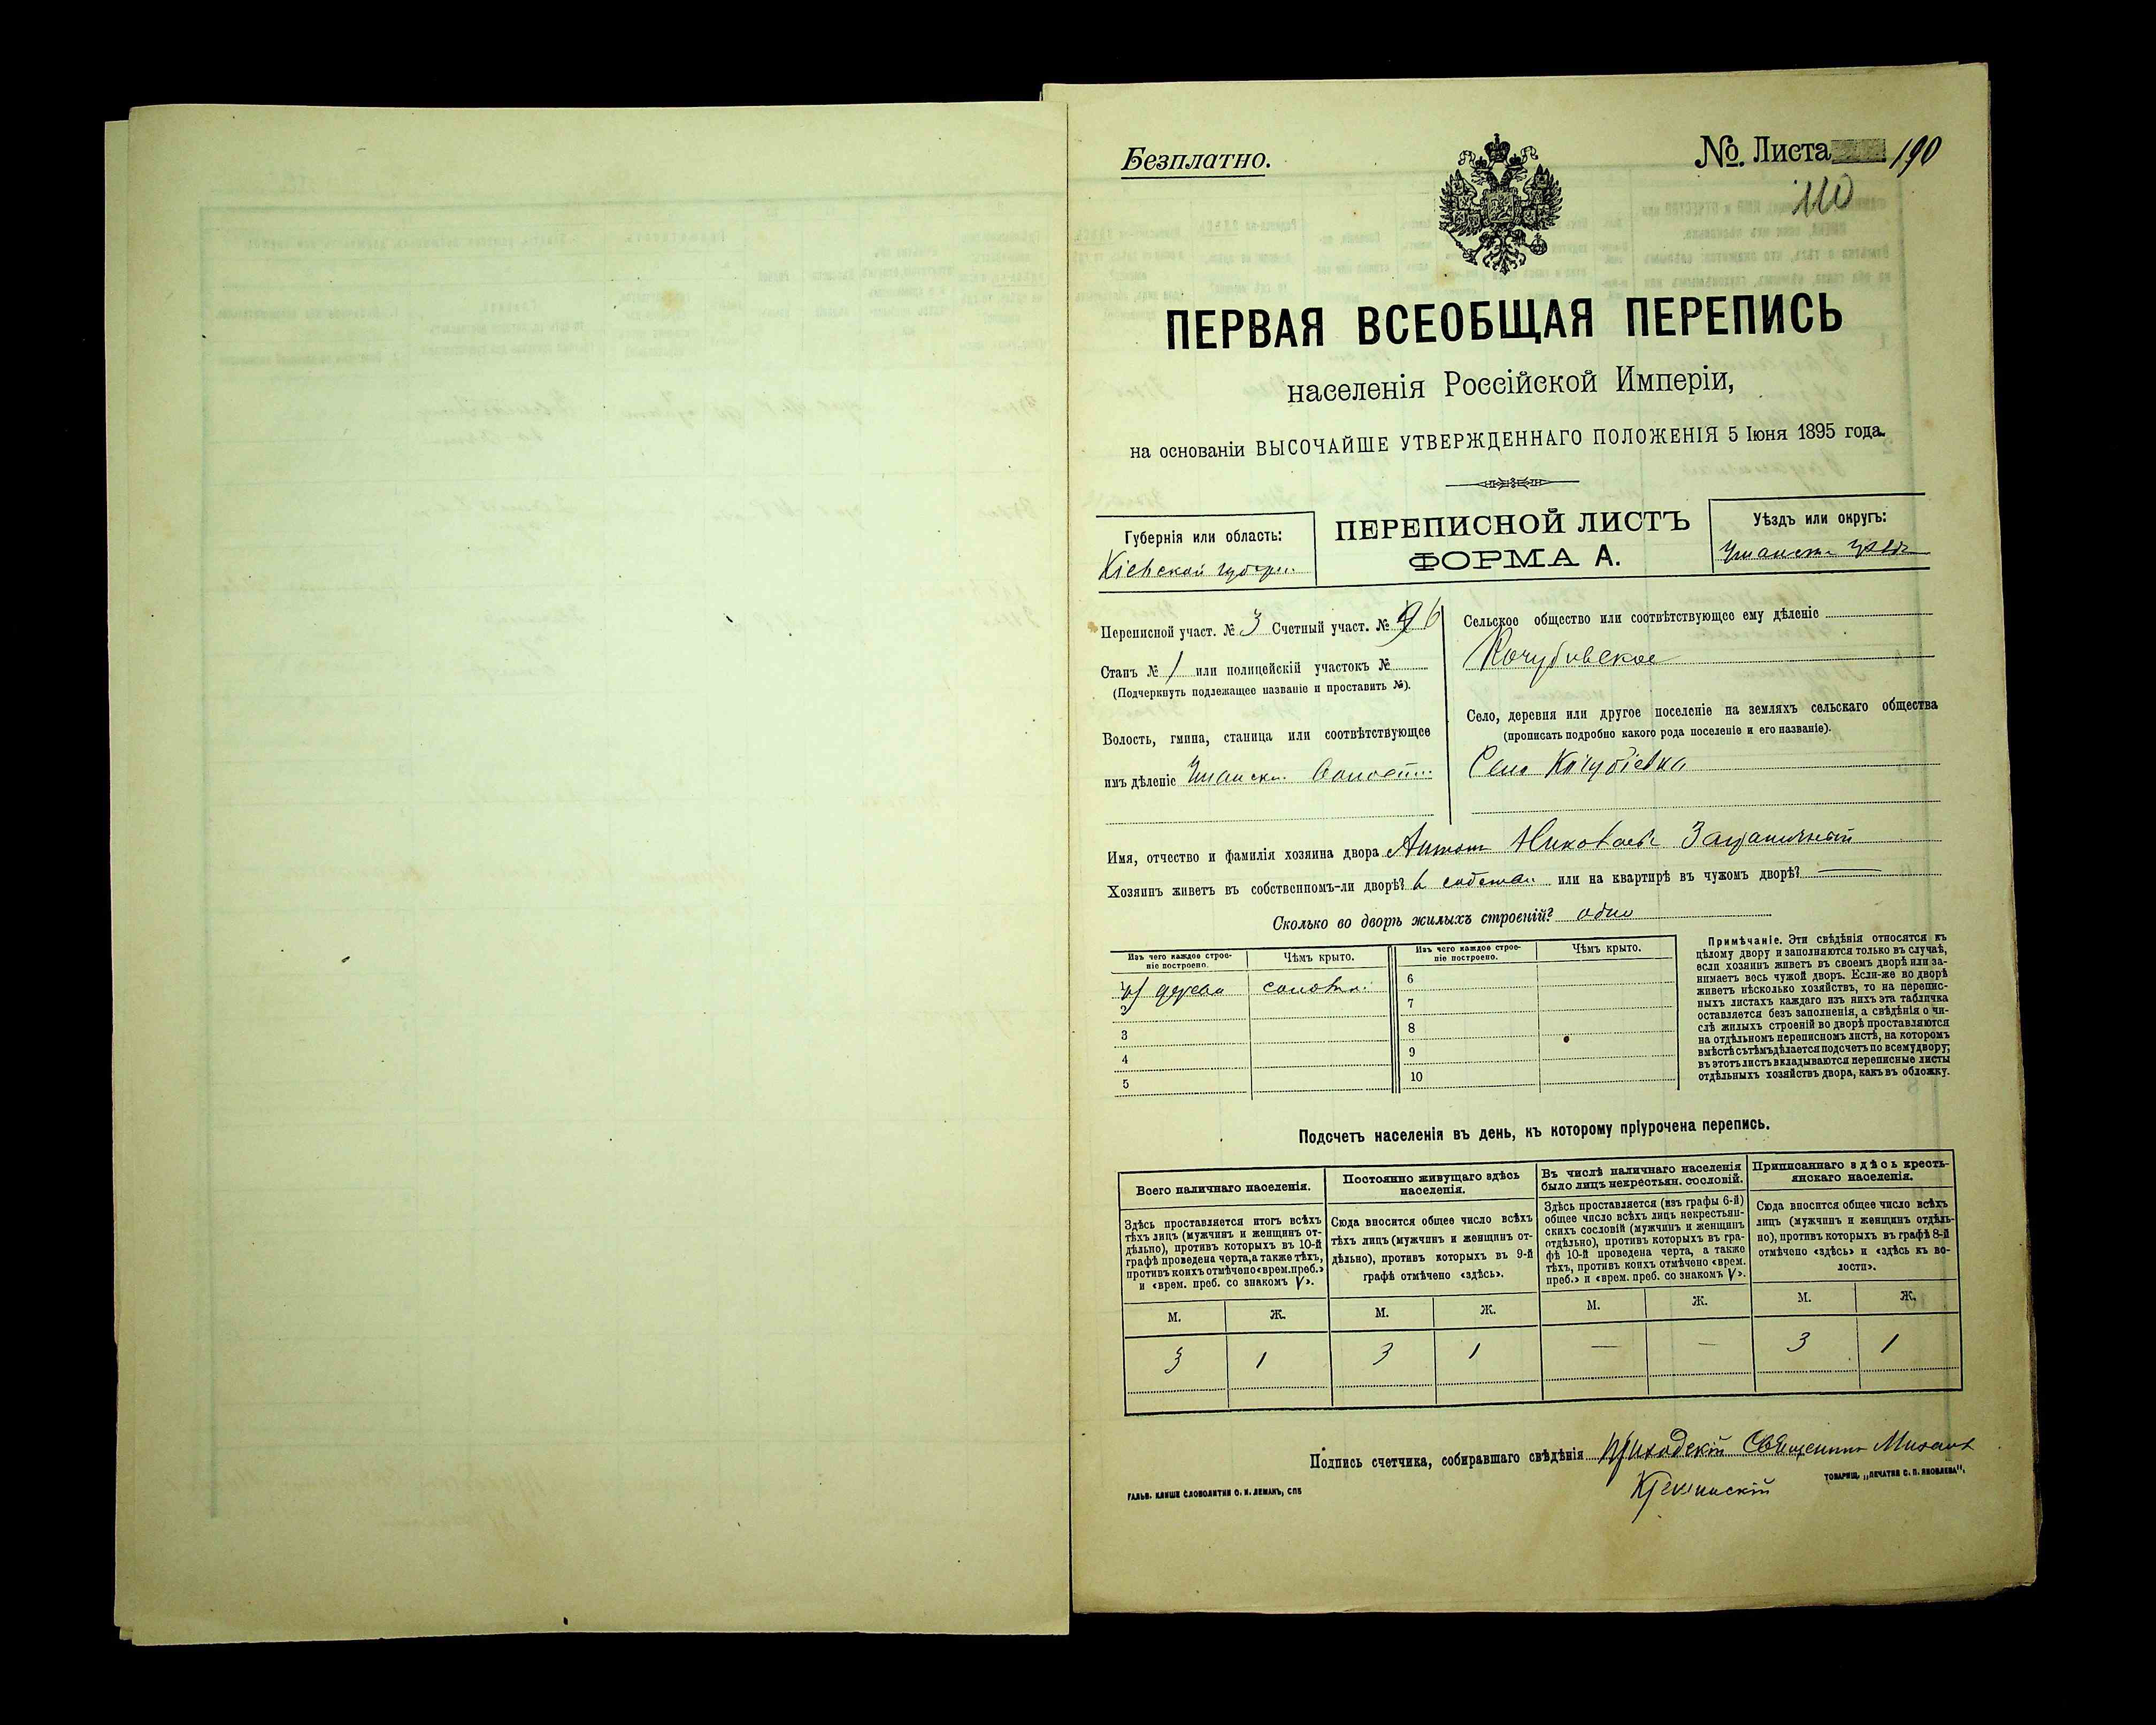 Безплатно.
№ Листа 190
110
ПЕРВАЯ ВСЕОБЩАЯ ПЕРЕПИСЬ
населенія Россійской Имперіи,
на основаніи ВЫСОЧАЙШЕ УТВЕРЖДЕННАГО ПОЛОЖЕНІЯ 5 Іюня 1895 года.
ПЕРЕПИСНОЙ ЛИСТЪ
ФОРМА А.
Губернія или область:
Кіевской губерн.
Уѣздъ или округъ:
Уманск. уѣздъ
Переписной участ. № 3 Счетный участ. № 6
Станъ № 1 или полицейскій участокъ №
(Подчеркнуть подлежащее названіе и проставить №).
Волость, гмина, станица или соотвѣтствующее
имъ дѣленіе Уманск. волост.
Сельское общество или соотвѣтствующее ему дѣленіе
Кочубивское
Село, деревня или другое поселеніе на земляхъ сельскаго общества
(прописать подробно какого рода поселеніе и его названіе).
Село Кочубіевка
Имя, отчество и фамилія хозяина двора Антонъ Николаевъ
Хозяинъ живетъ въ собственномъ-ли дворѣ? в собствен. или на квартирѣ въ чужомъ дворѣ? —
Сколько во дворѣ жилыхъ строеній? одно
Изъ чего каждое строе-
ніе построено.
Чѣмъ крыто.
Изъ чего каждое строе-
ніе построено.
Чѣмъ крыто.
1 дерева солом.
2
3
4
5
6
7
8
9
10
Примѣчаніе. Эти свѣдѣнія относятся къ
цѣлому двору и заполняются только въ случаѣ,
если хозяинъ живетъ въ своемъ дворѣ или за-
нимаетъ весь чужой дворъ. Если-же во дворѣ
живетъ нѣсколько хозяйствъ, то на перепис-
ныхъ листахъ каждаго изъ нихъ эта табличка
оставляется безъ заполненія, а свѣдѣнія о чи-
слѣ жилыхъ строеній во дворѣ проставляются
на отдѣльномъ переписномъ листѣ, на которомъ
вмѣстѣ съ тѣмъ дѣлается подсчетъ по всему двору;
въ этотъ листъ вкладываются переписные листы
отдѣльныхъ хозяйствъ двора, какъ въ обложку.
Подсчетъ населенія въ день, къ которому пріурочена перепись.
Всего наличнаго населенія.
Здѣсь проставляется итогъ всѣхъ
тѣхъ лицъ (мужчинъ и женщинъ от-
дѣльно), противъ которыхъ въ 10-й
графѣ проведена черта, а также тѣхъ,
противъ коихъ отмѣчено «врем. преб.»
и «врем. преб. со знакомъ V».
Постоянно живущаго здѣсь
населенія.
Сюда вносится общее число всѣхъ
тѣхъ лицъ (мужчинъ и женщинъ от-
дѣльно), противъ которыхъ въ 9-й
графѣ отмѣчено «здѣсь».
Въ числѣ наличнаго населенія
было лицъ некрестьян. сословій.
Здѣсь проставляется (изъ графы 6-й)
общее число всѣхъ лицъ некрестьян-
скихъ сословій (мужчинъ и женщинъ
отдѣльно), противъ которыхъ въ гра-
фѣ 10-й проведена черта, а также
тѣхъ, противъ коихъ отмѣчено «врем.
преб.» и «врем. преб. со знакомъ V».
Приписаннаго здѣсь кресть-
янскаго населенія.
Сюда вносится общее число всѣхъ
лицъ (мужчинъ и женщинъ отдѣль-
но), противъ которыхъ въ графѣ 8-й
отмѣчено «здѣсь» и «здѣсь къ во-
лости».
М. Ж. М. Ж. М. Ж. М. Ж.
3 1 3 1 — — 3 1
Подпись счетчика, собиравшаго свѣдѣнія приходскій Священникъ Михаилъ
ГАЛЬВ. КЛИШЕ СЛОВОЛИТНИ О. И. ЛЕМАНЪ, СПБ
ТОВАРИЩ. „ПЕЧАТНЯ С. П. ЯКОВЛЕВА".